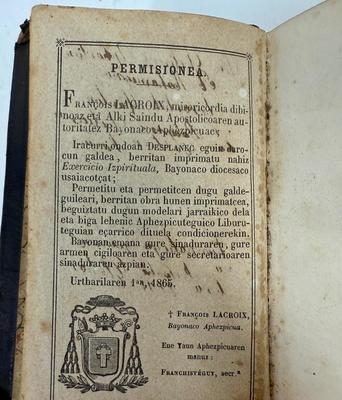 PERMISIONEA.
FRANÇOIS LACROIX, misericordia dibi-
noaz eta Alki Saindu Apostolicoaren au-
toritatez Bayonaco Aphezpicuac;
Iracurri ondoan DESPLANEC eguin daro-
cun galdea, berritan imprimatu nahiz
Exercicio Izpirituala, Bayonaco diocesaco
usaiacotçat;
Permetitu eta permetitcen dugu galde-
guileari, berritan obra hunen imprimatcea,
beguiztatu dugun modelari jarraikico dela
eta biga lehenic Aphezpicuteguico Liburu-
teguian eçarrico dituela condicionerekin.
Bayonan emana gure sinaduraren, gure
armen cigiloaren eta gure secretarioaren
sinaduraren azpian.
Urtharilaren 1an, 1865.
† FRANÇOIS LACROIX,
Bayonaco Aphezpicua.
Ene Yaun Aphezpicuaren
manuz:
FRANCHISTÉGUY, secr.a